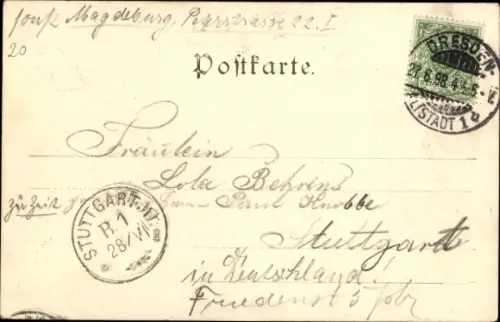 sonst Magdeburg, Peterstrasse 22.I
20
Postkarte.
DRESDEN-
27.6.98.4-5.V
ALTSTADT 1
Fräulein
Lola Behrens
zu Zeit Herrn Paul Knobbe
STUTTGART
B.1
28/VI
Stuttgart
in Deutschland!
Friedenst 5